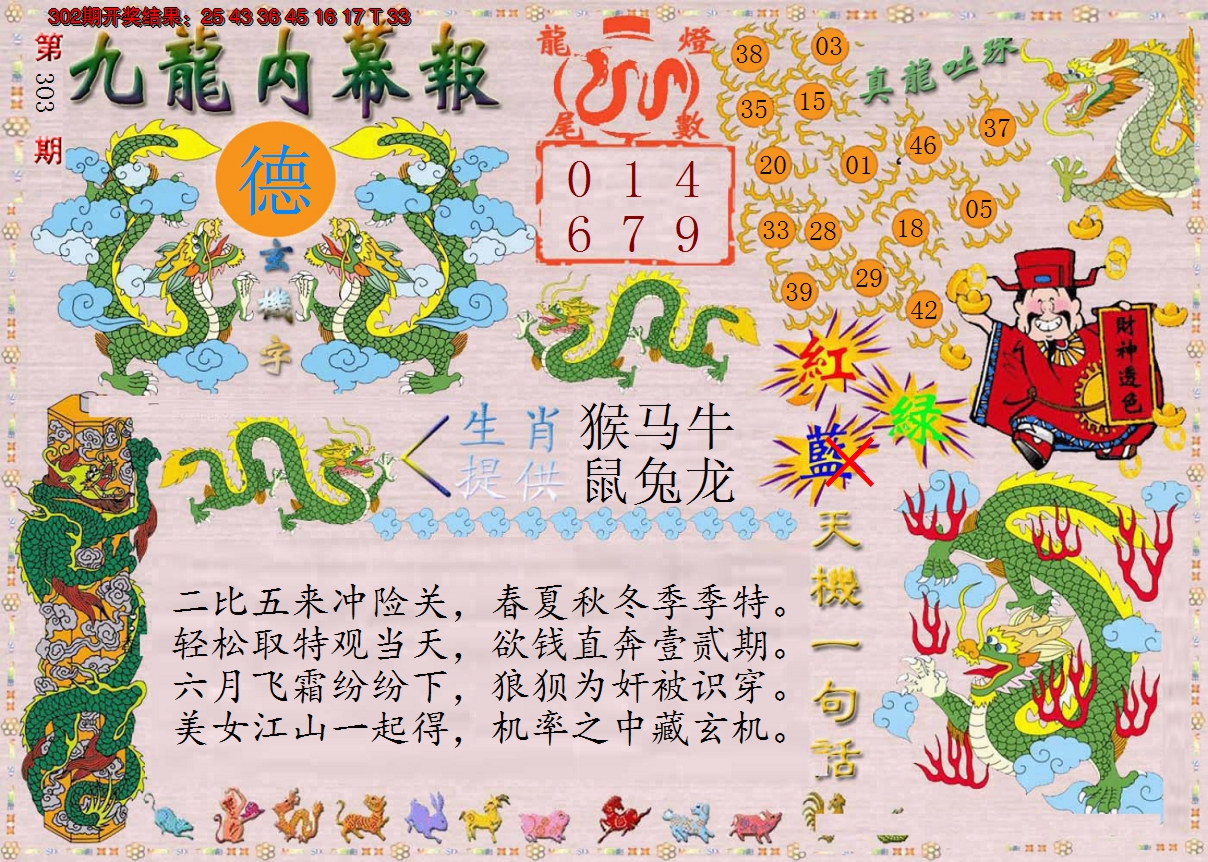 302期开奖结果：25 43 36 45 16 17 T 33
第303期
九龍内幕報
德
玄機字
龍燈
尾數
0 1 4
6 7 9
真龍吐珠
38 03
35 15
46 37
20 01
05
33 28 18
29
39 42
財神透色
紅
緑
藍
生肖 猴马牛
提供 鼠兔龙
天機一句话
二比五来冲险关，春夏秋冬季季特。
轻松取特观当天，欲钱直奔壹贰期。
六月飞霜纷纷下，狼狈为奸被识穿。
美女江山一起得，机率之中藏玄机。